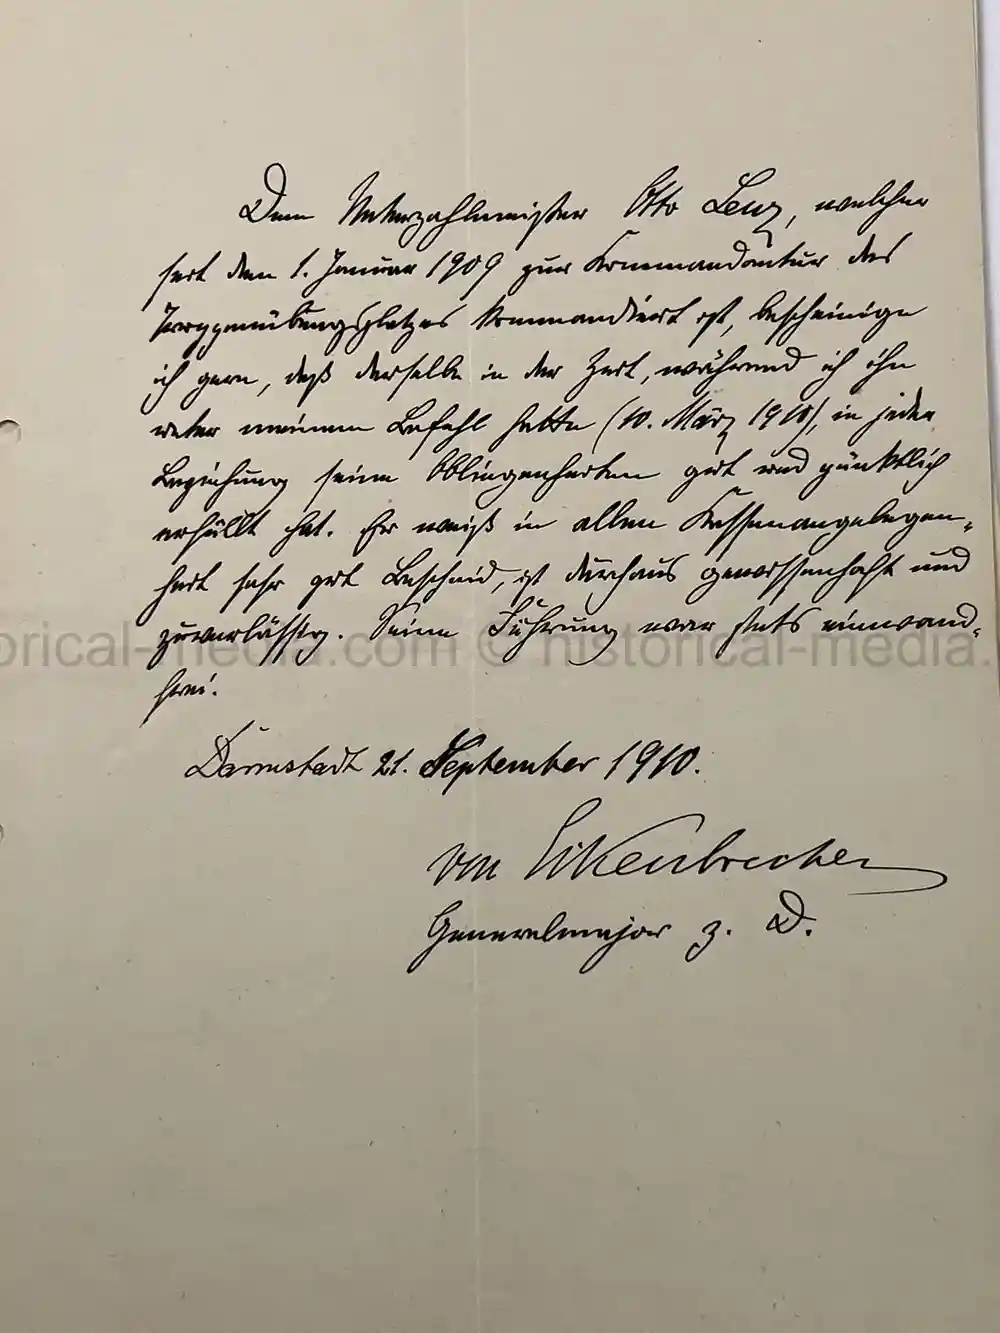 Dem Unterzahlmeister Otto Lenz, welcher
seit dem 1. Januar 1909 zur Kommandantur des
Truppenübungsplatzes kommandiert ist, bescheinige
ich gern, daß derselbe in der Zeit, während ich ihn
unter meinem Befehl hatte (10. März 1910), in jeder
Beziehung seine Obliegenheiten gut und pünktlich
erfüllt hat. Er weiß in allen Kassenangelegen-
heit sehr gut Bescheid, ist durchaus gewissenhaft und
zuverlässig. Seine Führung war stets einwand-
frei.
orical-media.com © historical-media.
Darmstadt 21. September 1910.
von Eikenbrecher
Generalmajor z. D.